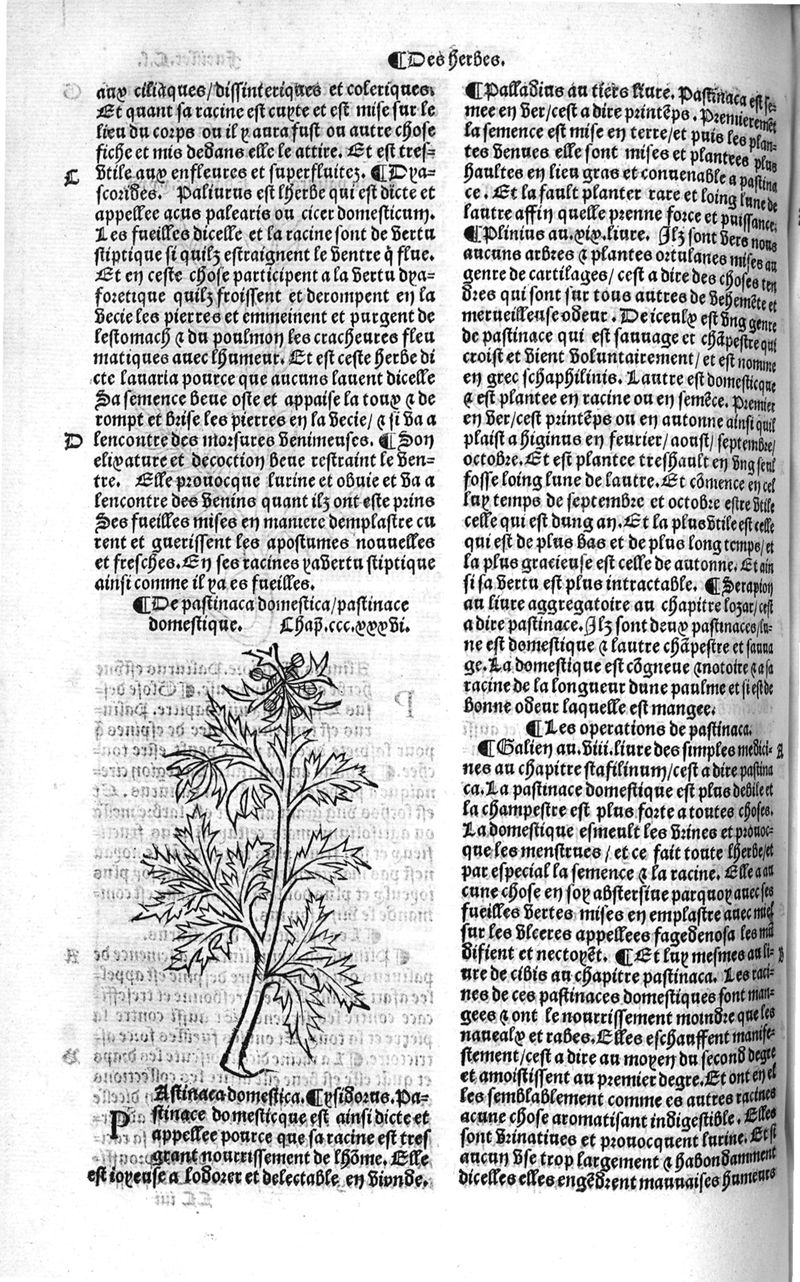 ¶Des herbes.
aux ciliaques/dissinteriques et coleriques.
Et quant sa racine est cuyte et est mise sur le
lieu du corps ou il y aura fust ou autre chose
fiche et mis dedans elle le attire. Et est tres-
C vtile aux enfleures et superfluitez. ¶Dya-
scorides. Paliurus est lherbe qui est dicte et
appellee acus palearis ou cicer domesticum.
Les fueilles dicelle et la racine sont de vertu
stiptique si quilz estraignent le ventre q̄ flue.
Et en ceste chose participent a la vertu dya-
foretique quilz froissent et derompent en la
vecie les pierres et emmeinent et purgent de
lestomach ⁊ du poulmon les cracheures fleu
matiques auec lhumeur. Et est ceste herbe di
cte lauaria pource que aucuns lauent dicelle
Sa semence beue oste et appaise la toux ⁊ de
rompt et brise les pierres en la vecie/ ⁊ si va a
D lencontre des morsures venimeuses. ¶Son
elixature et decoction beue restraint le ven-
tre. Elle prouocque lurine et obuie et va a
lencontre des venins quant ilz ont este prins
Ses fueilles mises en maniere demplastre cu
rent et guerissent les apostumes nouuelles
et fresches. En ses racines ya vertu stiptique
ainsi comme il ya es fueilles.
¶De pastinaca domestica/pastinace
domestique. Chap̄. ccc.xxxvi.
PAstinaca domestica. ¶Ysidorus. Pa-
stinace domesticque est ainsi dicte et
appellee pource que sa racine est tres
grant nourrissement de lhōme. Elle
est ioyeuse a lodorer et delectable en viande.
¶Palladius au tiers liure. Pastinaca est se-
mee en ver/cest a dire printēps. Premieremēt
la semence est mise en terre/et puis les plan-
tes venues elle sont mises et plantees plus
haultes en lieu gras et conuenable a pastina
ce. Et la fault planter rare et loing lune de
lautre affin quelle prenne force et puissance.
¶Plinius au.xix.liure. Ilz sont vers nous
aucuns arbres ⁊ plantes ortulanes mises au
genre de cartilages/ cest a dire des choses ten
dres qui sont sur tous autres de vehemēte et
merueilleuse odeur. De iceulx est vng genre
de pastinace qui est sauuage et chāpestre qui
croist et vient voluntairement/ et est nomme
en grec schaphilinis. Lautre est domesticque
⁊ est plantee en racine ou en semēce. Premier
en ver/cest printēps ou en autonne ainsi quil
plaist a higinus en feurier/aoust/ septembre/
octobre. Et est plantee treshault en vng seul
fosse loing lune de lautre. Et cōmence en cel
luy temps de septembre et octobre estre vtile
celle qui est dung an. Et la plus vtile est celle
qui est de plus bas et de plus long temps/ et
la plus gracieuse est celle de autonne. Et ain
si sa vertu est plus intractable. ¶Serapion
au liure aggregatoire au chapitre lozar/ cest
a dire pastinace. Ilz sont deux pastinaces/lu-
ne est domestique ⁊ lautre chāpestre et sauua
ge. La domestique est cōgneue ⁊ notoire ⁊ a sa
racine de la longueur dune paulme et si est de
bonne odeur laquelle est mangee.
¶Les operations de pastinaca.
¶Galien au.viii.liure des simples medici- A
nes au chapitre stafilinum/cest a dire pastina
ca. La pastinace domestique est plus debile et
la champestre est plus forte a toutes choses.
La domestique esmeult les vrines et prouoc-
que les menstrues/ et ce fait toute lherbe/et
par especial la semence ⁊ la racine. Elle a au
cune chose en soy abstersiue parquoy auec ses
fueilles vertes mises en emplastre auec miel
sur les vlceres appellees fagedenosa les mū
difient et nectoyēt. ¶Et luy mesmes au li- B
ure de cibis au chapitre pastinaca. Les raci-
nes de ces pastinaces domestiques sont man-
gees ⁊ ont le nourrissement moindre que les
naueaulx et rabes. Elles eschauffent manife-
stement/cest a dire au moyen du second degre
et amoistissent au premier degre. Et ont en el
les semblablement comme es autres racines
acune chose aromatisant indigestible. Elles
sont vrinatiues et prouocquent lurine. Et si
aucun vse trop largement ⁊ habondamment
dicelles elles engēdrent mauuaises humeurs